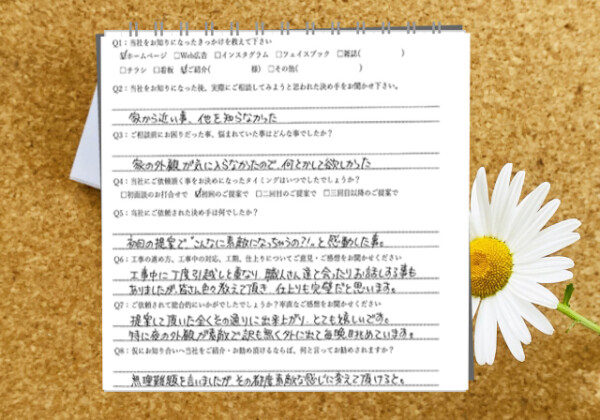 Q1：当社をお知りになったきっかけを教えて下さい
☑ホームページ □Web広告 □インスタグラム □フェイスブック □雑誌( )
□チラシ □看板 ☑ご紹介( 様) □その他( )
Q2：当社をお知りになった後、実際にご相談してみようと思われた決め手をお聞かせ下さい。
家から近い事、他を知らなかった
Q3：ご相談前にお困りだった事、悩まれていた事はどんな事でしたか？
家の外観が気に入らなかったので、何とかして欲しかった
Q4：当社にご依頼頂く事をお決めになったタイミングはいつでしたでしょうか？
□初面談のお打合せで ☑初回のご提案で □二回目のご提案で □三回目以降のご提案で
Q5：当社にご依頼された決め手は何でしたか？
初回の提案で"こんなに素敵になっちゃうの？！"と感動した事。
Q6：工事の進め方、工事中の対応、工期、仕上りについてご意見・ご感想をお聞かせください
工事中に丁度引越しと重なり、職人さん達と会ったりお話しする事も
ありましたが、皆さん色々教えて頂き、仕上りも完璧だと思います。
Q7：ご依頼されて総合的にいかがでしたでしょうか？率直なご感想をお聞かせください
提案して頂いた全くその通りに出来上がり、とても嬉しいです。
特に夜の外観が素敵で訳も無く外に出て毎晩眺めています。
Q8：仮にお知り合いへ当社をご紹介・お勧め頂けるならば、何と言ってお勧めされますか？
無理難題を言いましたが、その都度素敵な感じに変えて頂けると。